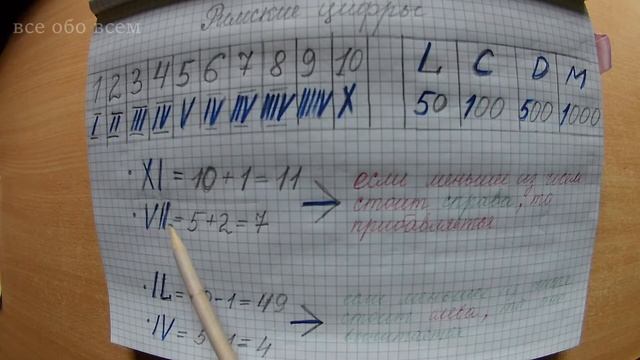 все обо всем
Римские цифры
1 2 3 4 5 6 7 8 9 10 L C D M
I II III IV V IV IIV IIIV IIIIV X 50 100 500 1000
· XI = 10 + 1 = 11
если меньшее из чисел
стоит справа, то
прибавляется
· VII = 5 + 2 = 7
· IL = 0 - 1 = 49
если меньшее из
слева, то
· IV = 5 1 = 4